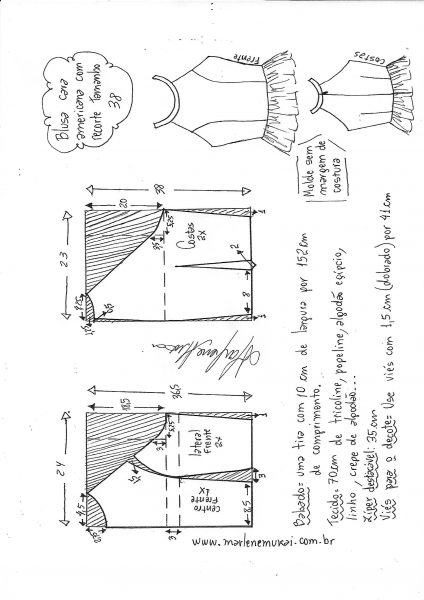 Blusa cava
americana com
recorte Tamanho
38
Frente
costas
Molde sem
margem de
costura
23
38
20
5,25
Costas
2x
2
8
24
36,5
18,5
3
5,25
lateral
Frente
2x
centro
Frente
1x
3
3
8,5
Babado= uma tira com 10 cm de largura por 152cm
de comprimento.
Tecido= 70cm de tricoline, popeline, algodão egípcio,
linho, crepe de algodão...
Ziper destacável: 35 cm
Viés para o decote= Use viés com 1,5 cm (dobrado) por 41cm
www.marlenemukai.com.br